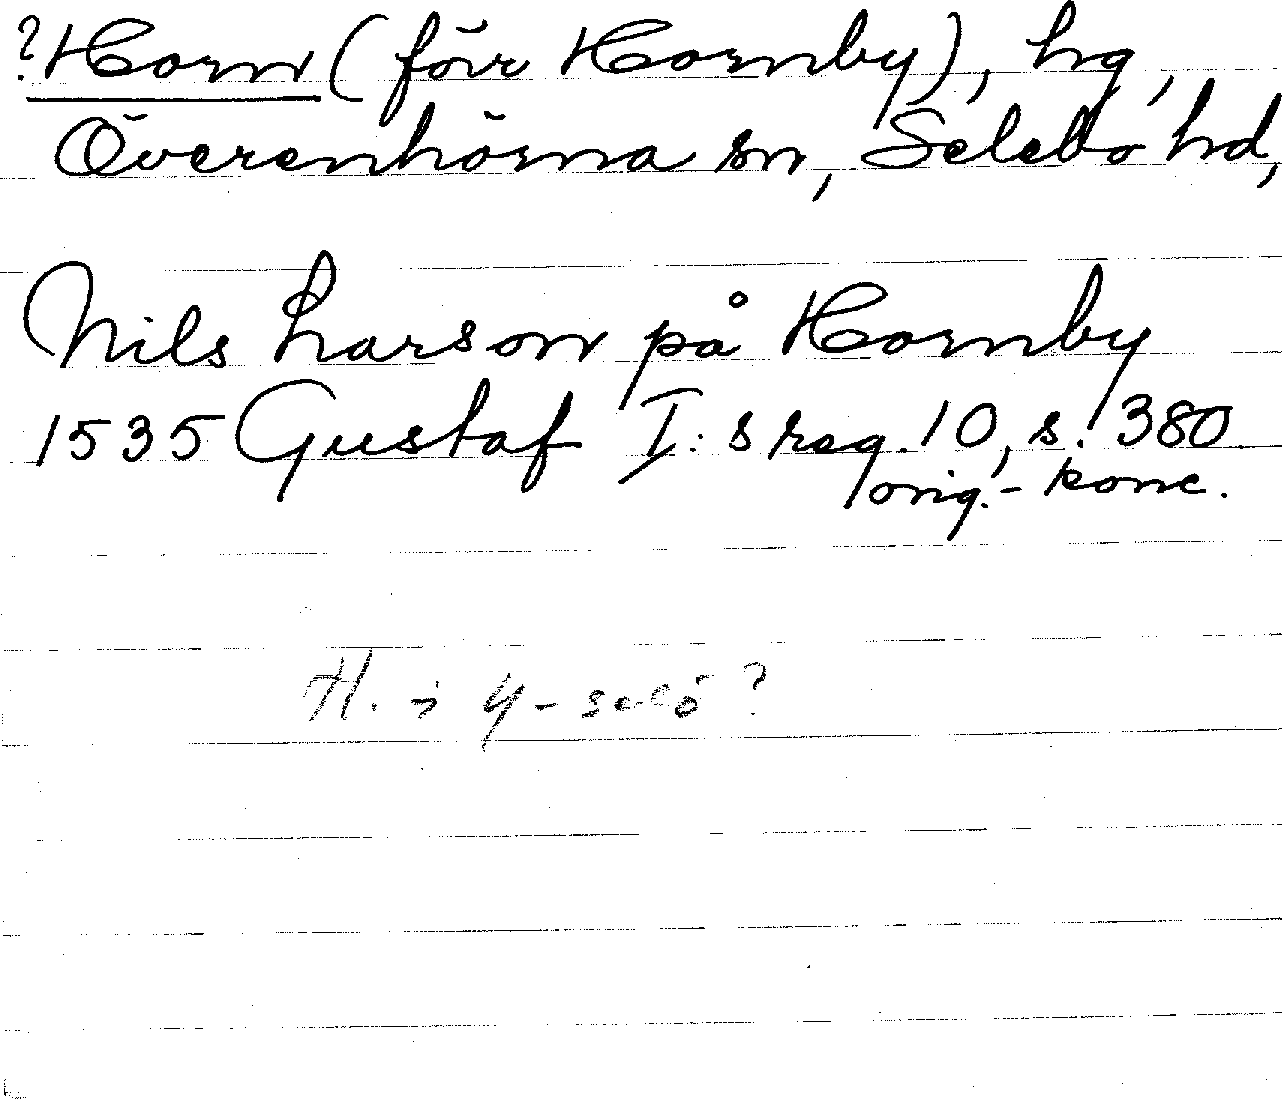 ?Horn (förr Hornby), hg,
Överenhörna sn, Selebo hd,
Nils Larson på Hornby
1535 Gustaf I:s reg. 10, s. 380
orig.-konc.
H. i Y-selö?